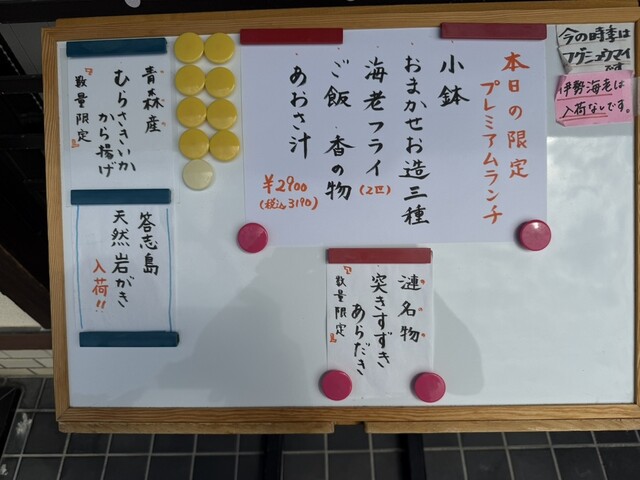 今の時季は
フグニュウマイ
です。
伊勢海老は
入荷なしです。
本日の限定
プレミアムランチ
小鉢
おまかせお造三種
海老フライ(2匹)
ご飯・香の物
あおさ汁
¥2900
(税込3190)
漣名物
突きすずき
あらだき
数量限定
青森産
むらさきいか
から揚げ
数量限定
答志島
天然岩がき
入荷!!